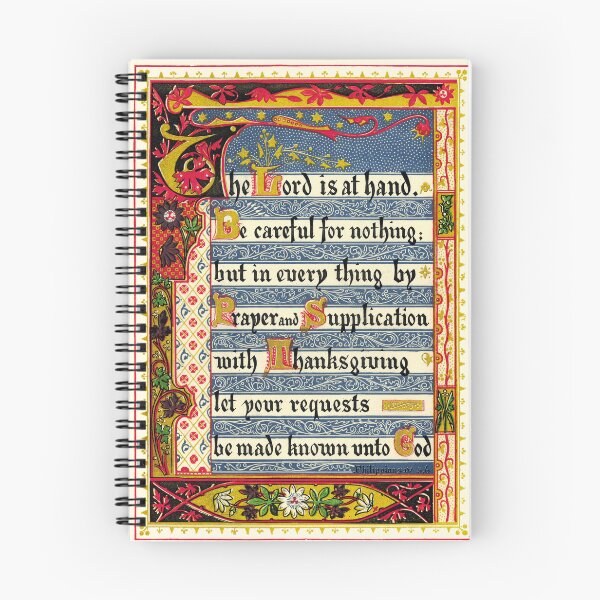 The Lord is at hand.
Be careful for nothing;
but in every thing by
Prayer and Supplication
with Thanksgiving
let your requests
be made known unto God